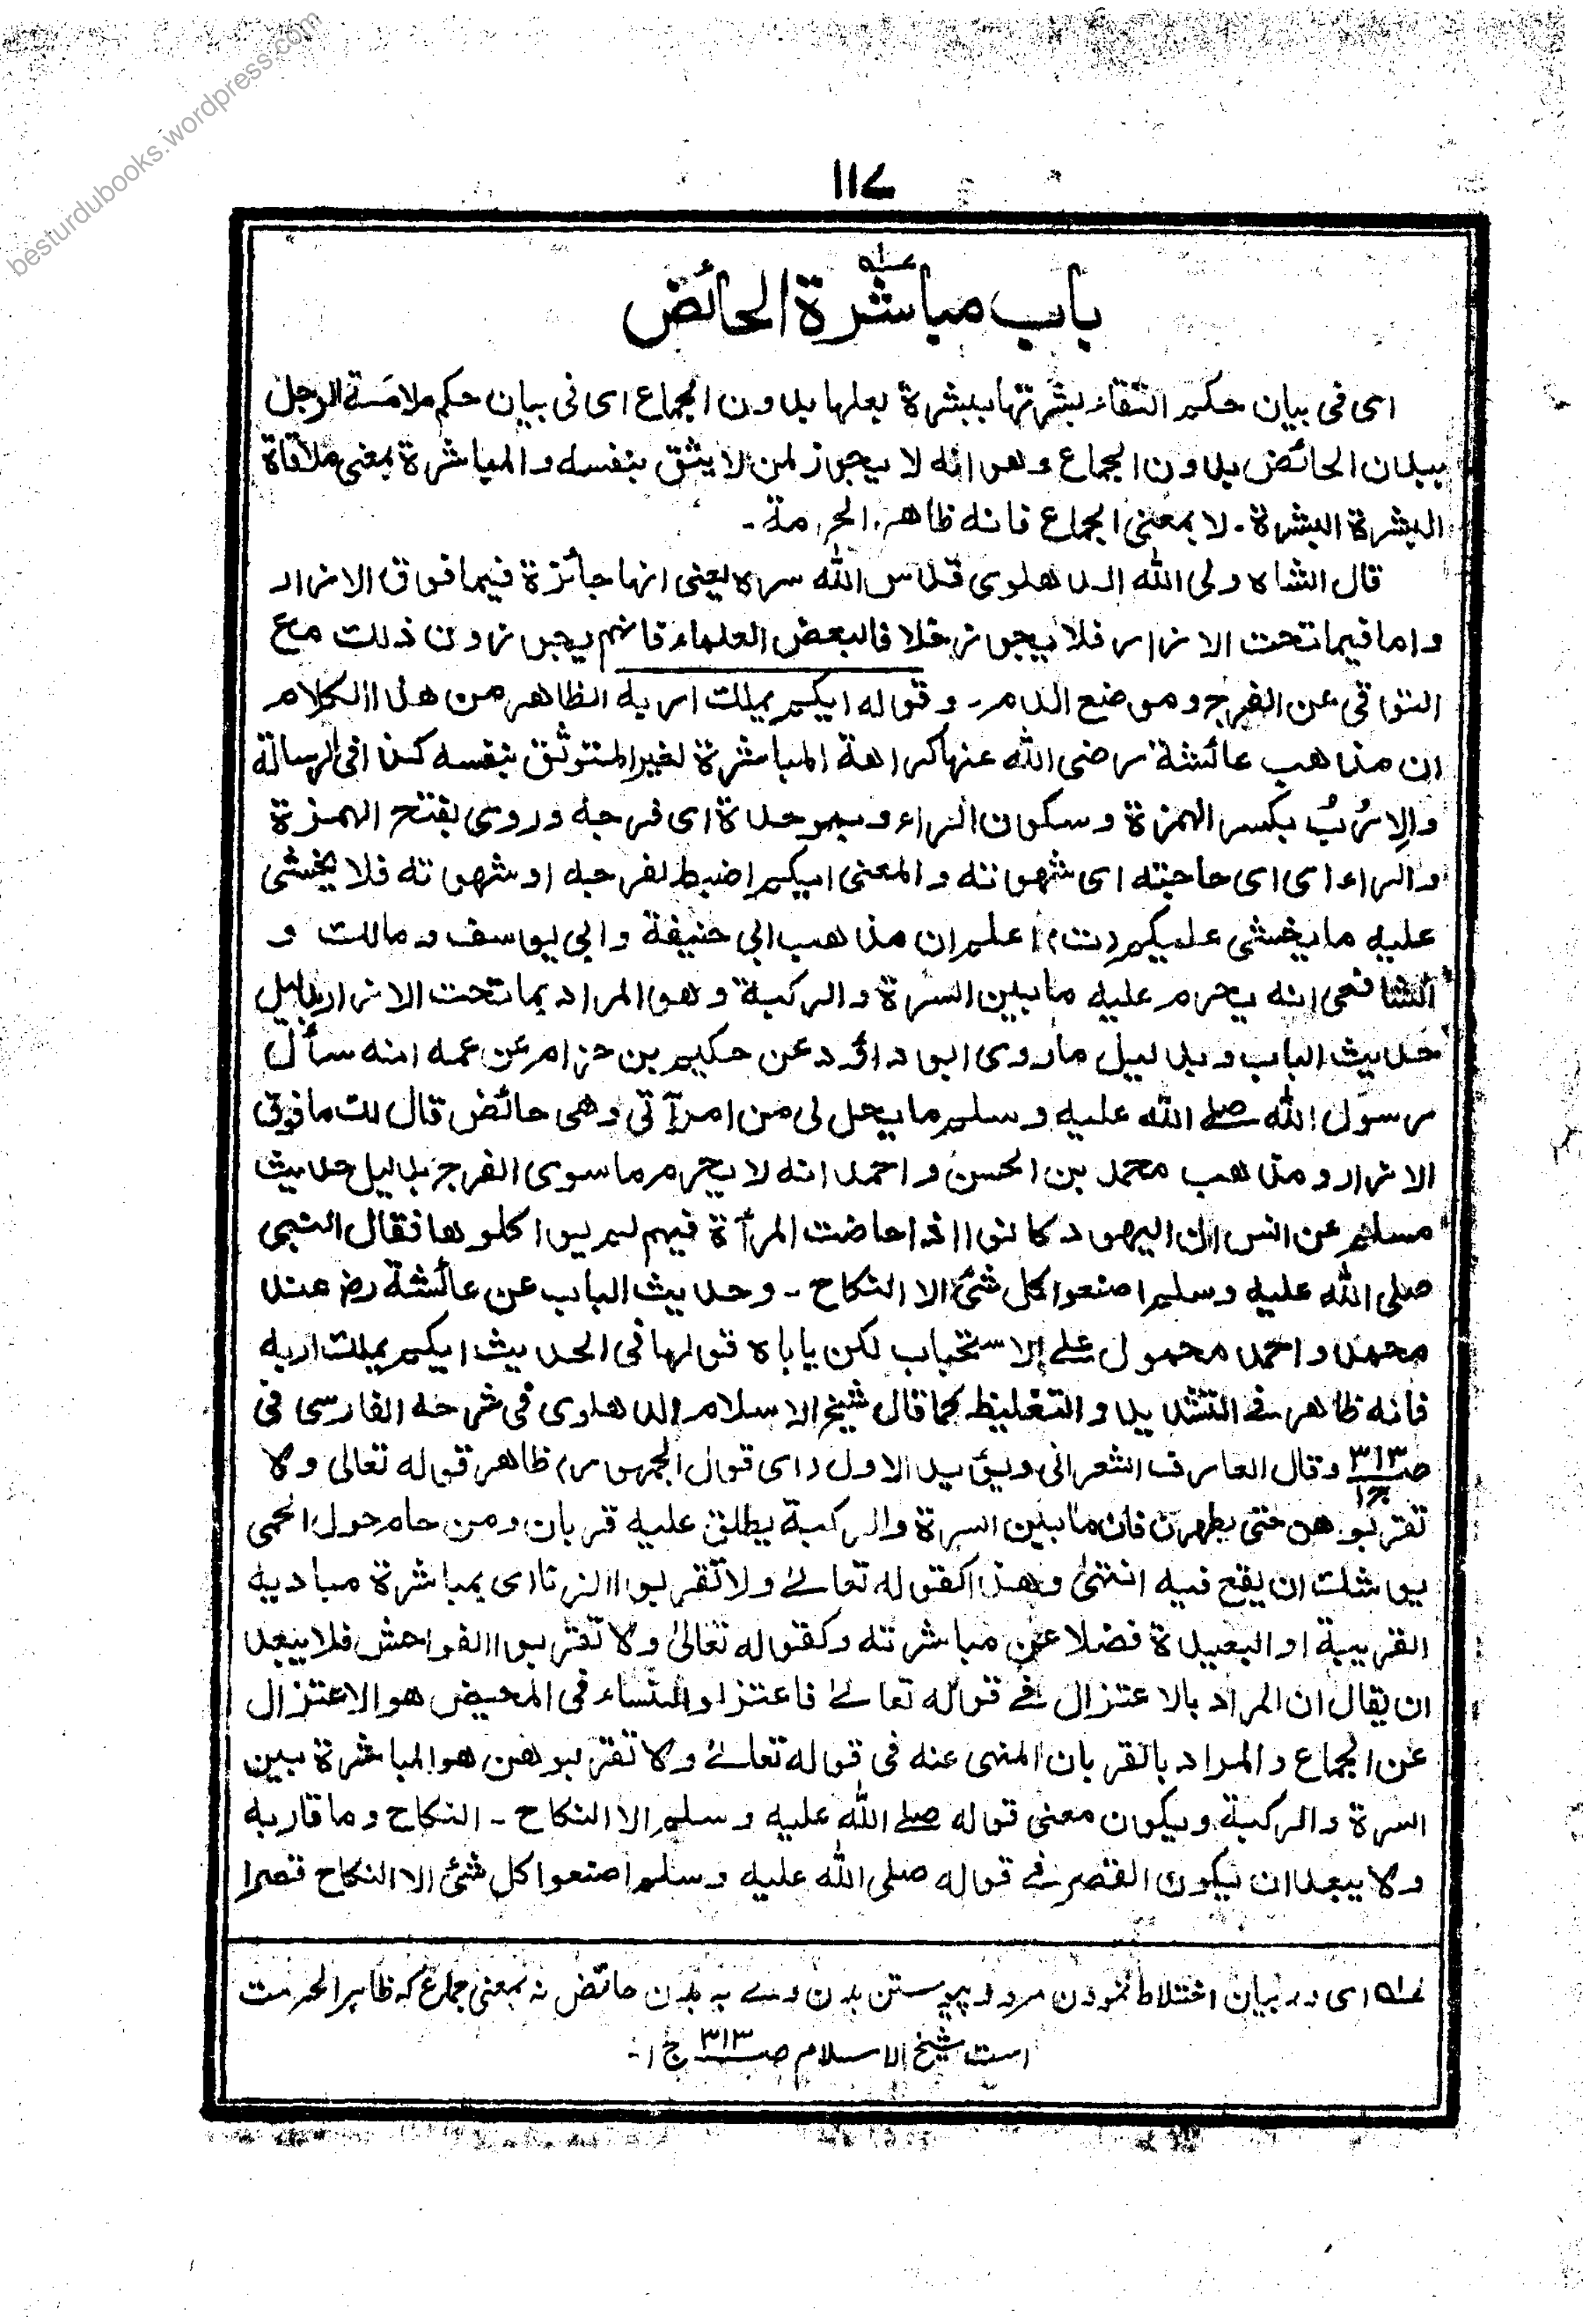 besturdubooks.wordpress.com
۱۱۷
باب مباشرة الحائض
ای فی بیان حکم التقاء بشرتها ببشرة بعلها بدون الجماع ای فی بیان حکم ملامسة الرجل
ببدن الحائض بدون الجماع وهو انه لا یجوز لمن لا یثق بنفسه والمباشرة بمعنی ملاقاة
البشرة البشرة۔ لا بمعنی الجماع فانه ظاهر الحرمة۔
قال الشاه ولی الله الدهلوی قدس الله سره یعنی انها جائزة فیما فوق الازار
واما فیما تحت الازار فلا یجوز خلافا لبعض العلماء فانهم یجوزون ذلک مع
التوقی عن الفرج وموضع الدم۔ وقوله ایکم یملک اربه الظاهر من هذا الکلام
ان مذهب عائشة رضی الله عنها کراهة المباشرة لغیر المتوثق بنفسه کذا فی الرسالة
والاِرْبُ بکسر الهمزة وسکون الراء وبموحدة ای فرجه وروی بفتح الهمزة
والراء ای ای حاجته ای شهوته والمعنی ایکم اضبط لفرجه او شهوته فلا یخشی
علیه ما یخشی علیکم (ت) اعلم ان مذهب ابی حنیفة وابی یوسف ومالک و
الشافعی انه یحرم علیه ما بین السرة والرکبة وهو المراد بما تحت الازار بدلیل
حدیث الباب وبدلیل ما روی ابو داؤد عن حکیم بن حزام عن عمه انه سأل
رسول الله صلے الله علیه وسلم ما یحل لی من امرآتی وهی حائض قال لک ما فوق
الازار ومذهب محمد بن الحسن واحمد انه لا یحرم ما سوی الفرج بدلیل حدیث
مسلم عن انس ان الیهود کانوا اذا حاضت المرآة فیهم لم یواکلوها فقال النبی
صلی الله علیه وسلم اصنعوا کل شئ الا النکاح۔ وحدیث الباب عن عائشة رض عند
محمد واحمد محمول علے الاستحباب لکن یاباه قولها فی الحدیث ایکم یملک اربه
فانه ظاهر فے التشدید والتغلیظ کما قال شیخ الاسلام الدهلوی فی شرحه الفارسی فی
صـ ۳۱۳ ج۱ وقال العارف الشعرانی ویؤید الاول (ای قول الجمهور) ظاهر قوله تعالی ولا
تقربوهن حتی یطهرن فان ما بین السرة والرکبة یطلق علیه قربان ومن حام حول الحمی
یوشک ان یقع فیه انتهیٰ وهذا کقوله تعالےٰ ولا تقربوا الزنا ای بمباشرة مبادیه
القریبة او البعیدة فضلا عن مباشرته وکقوله تعالیٰ ولا تقربوا الفواحش فلا یبعد
ان یقال ان المراد بالاعتزال فے قوله تعالےٰ فاعتزلوا النساء فی المحیض هو الاعتزال
عن الجماع والمراد بالقربان المنهی عنه فی قوله تعالےٰ ولا تقربوهن هو المباشرة بین
السرة والرکبة ویکون معنی قوله صلے الله علیه وسلم الا النکاح۔ النکاح وما قاربه
ولا یبعد ان یکون القصر فے قوله صلی الله علیه وسلم اصنعوا کل شئ الا النکاح قصرا
ای در بیان اختلاط نمودن مرد و پیوستن بدن وے به بدن حائض نہ بمعنی جماع کہ ظاہر الحرمت
است شیخ الاسلام صـ ۳۱۳ ج ۱۔